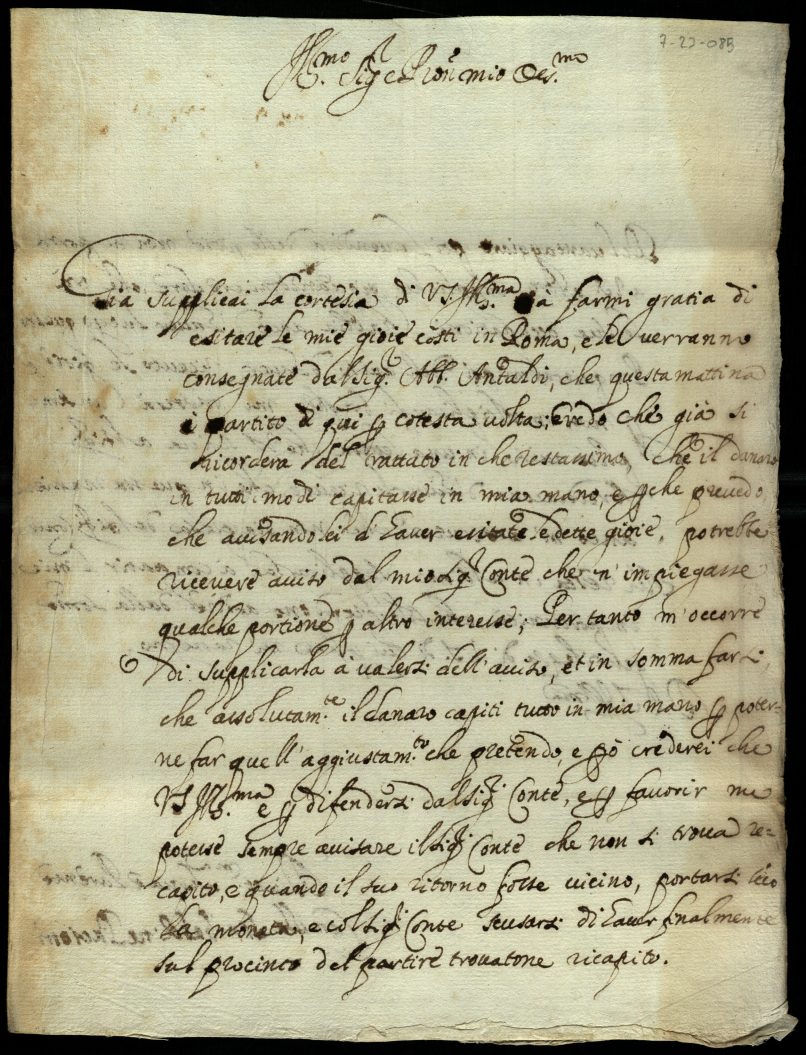 7-23-083
Ill.mo Sig.r e Pron mio Oss.mo
Già supplicai la cortesia di VS Ill.ma à farmi gratia di
esitare le mie gioie costì in Roma, che verranno
consegnate dal Sig.r Abb. Antaldi, che questa mattina
è partito di qui p cotesta volta; Credo che già si
ricorderà del trattato in che restassimo, che il danaro
in tutti modi capitasse in mia mano, e pche prevedo,
che avisandolei d'haver esitate le dette gioie, potrebbe
ricevere aviso dal mio Sig.r Conte che n'impiegasse
qualche portione p altro interesse; Per tanto m'occorre
di supplicarla à valersi dell'aviso, et in somma farsi,
che assolutam.te il danaro capiti tutto in mia mano p poter-
ne far quell'aggiustam.to che pretendo, e pò crederei che
VS Ill.ma e p difendersi dal Sig.r Conte, e p favorir me
potesse sempre avisare il Sig.r Conte che non si trova re=
capito, e quando il suo ritorno fosse vicino, portarsi seco
la moneta, e col Sig.r Conte scusarsi di haver finalmente
sul procinto del partire trovatone ricapito.